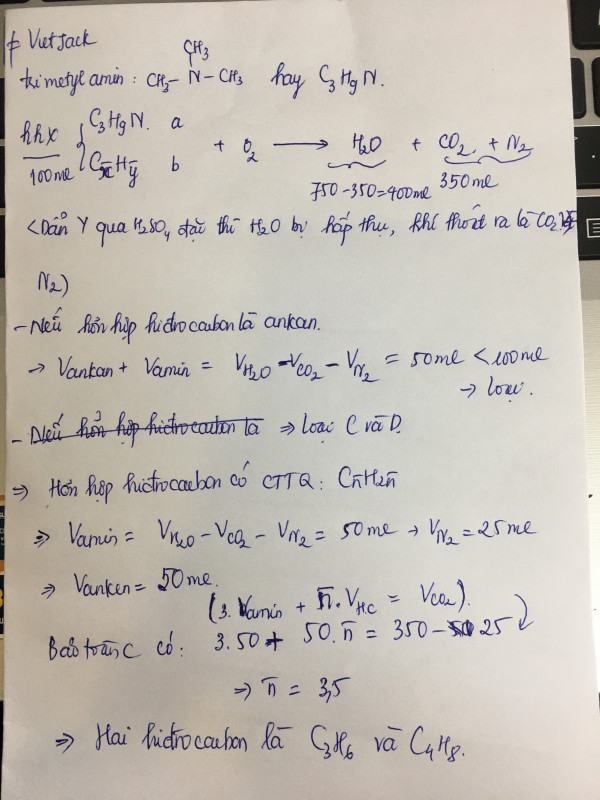 ₫ VietJack
CH3
trimetyl amin: CH3 - N - CH3 hay C3H9N.
hhX C3H9N. a
100ml Cx̄Hȳ b
+ O2 → H2O + CO2 + N2
750-350=400ml 350ml
<Dẫn Y qua H2SO4 đặc thì H2O bị hấp thụ, khí thoát ra là CO2 và
N2)
- Nếu hỗn hợp hiđrocacbon là ankan.
→ Vankan + Vamin = VH2O - VCO2 - VN2 = 50ml < 100ml
→ loại.
- Nếu hỗn hợp hiđrocacbon là ⇒ loại C và D.
⇒ Hỗn hợp hiđrocacbon có CTTQ: Cn̄H2n̄
⇒ Vamin = VH2O - VCO2 - VN2 = 50ml → VN2 = 25ml
⇒ Vanken = 50ml.
(3. Vamin + n̄. VHC = VCO2).
Bảo toàn C có: 3.50 + 50.n̄ = 350 - 25
⇒ n̄ = 3,5
⇒ Hai hiđrocacbon là C3H6 và C4H8.